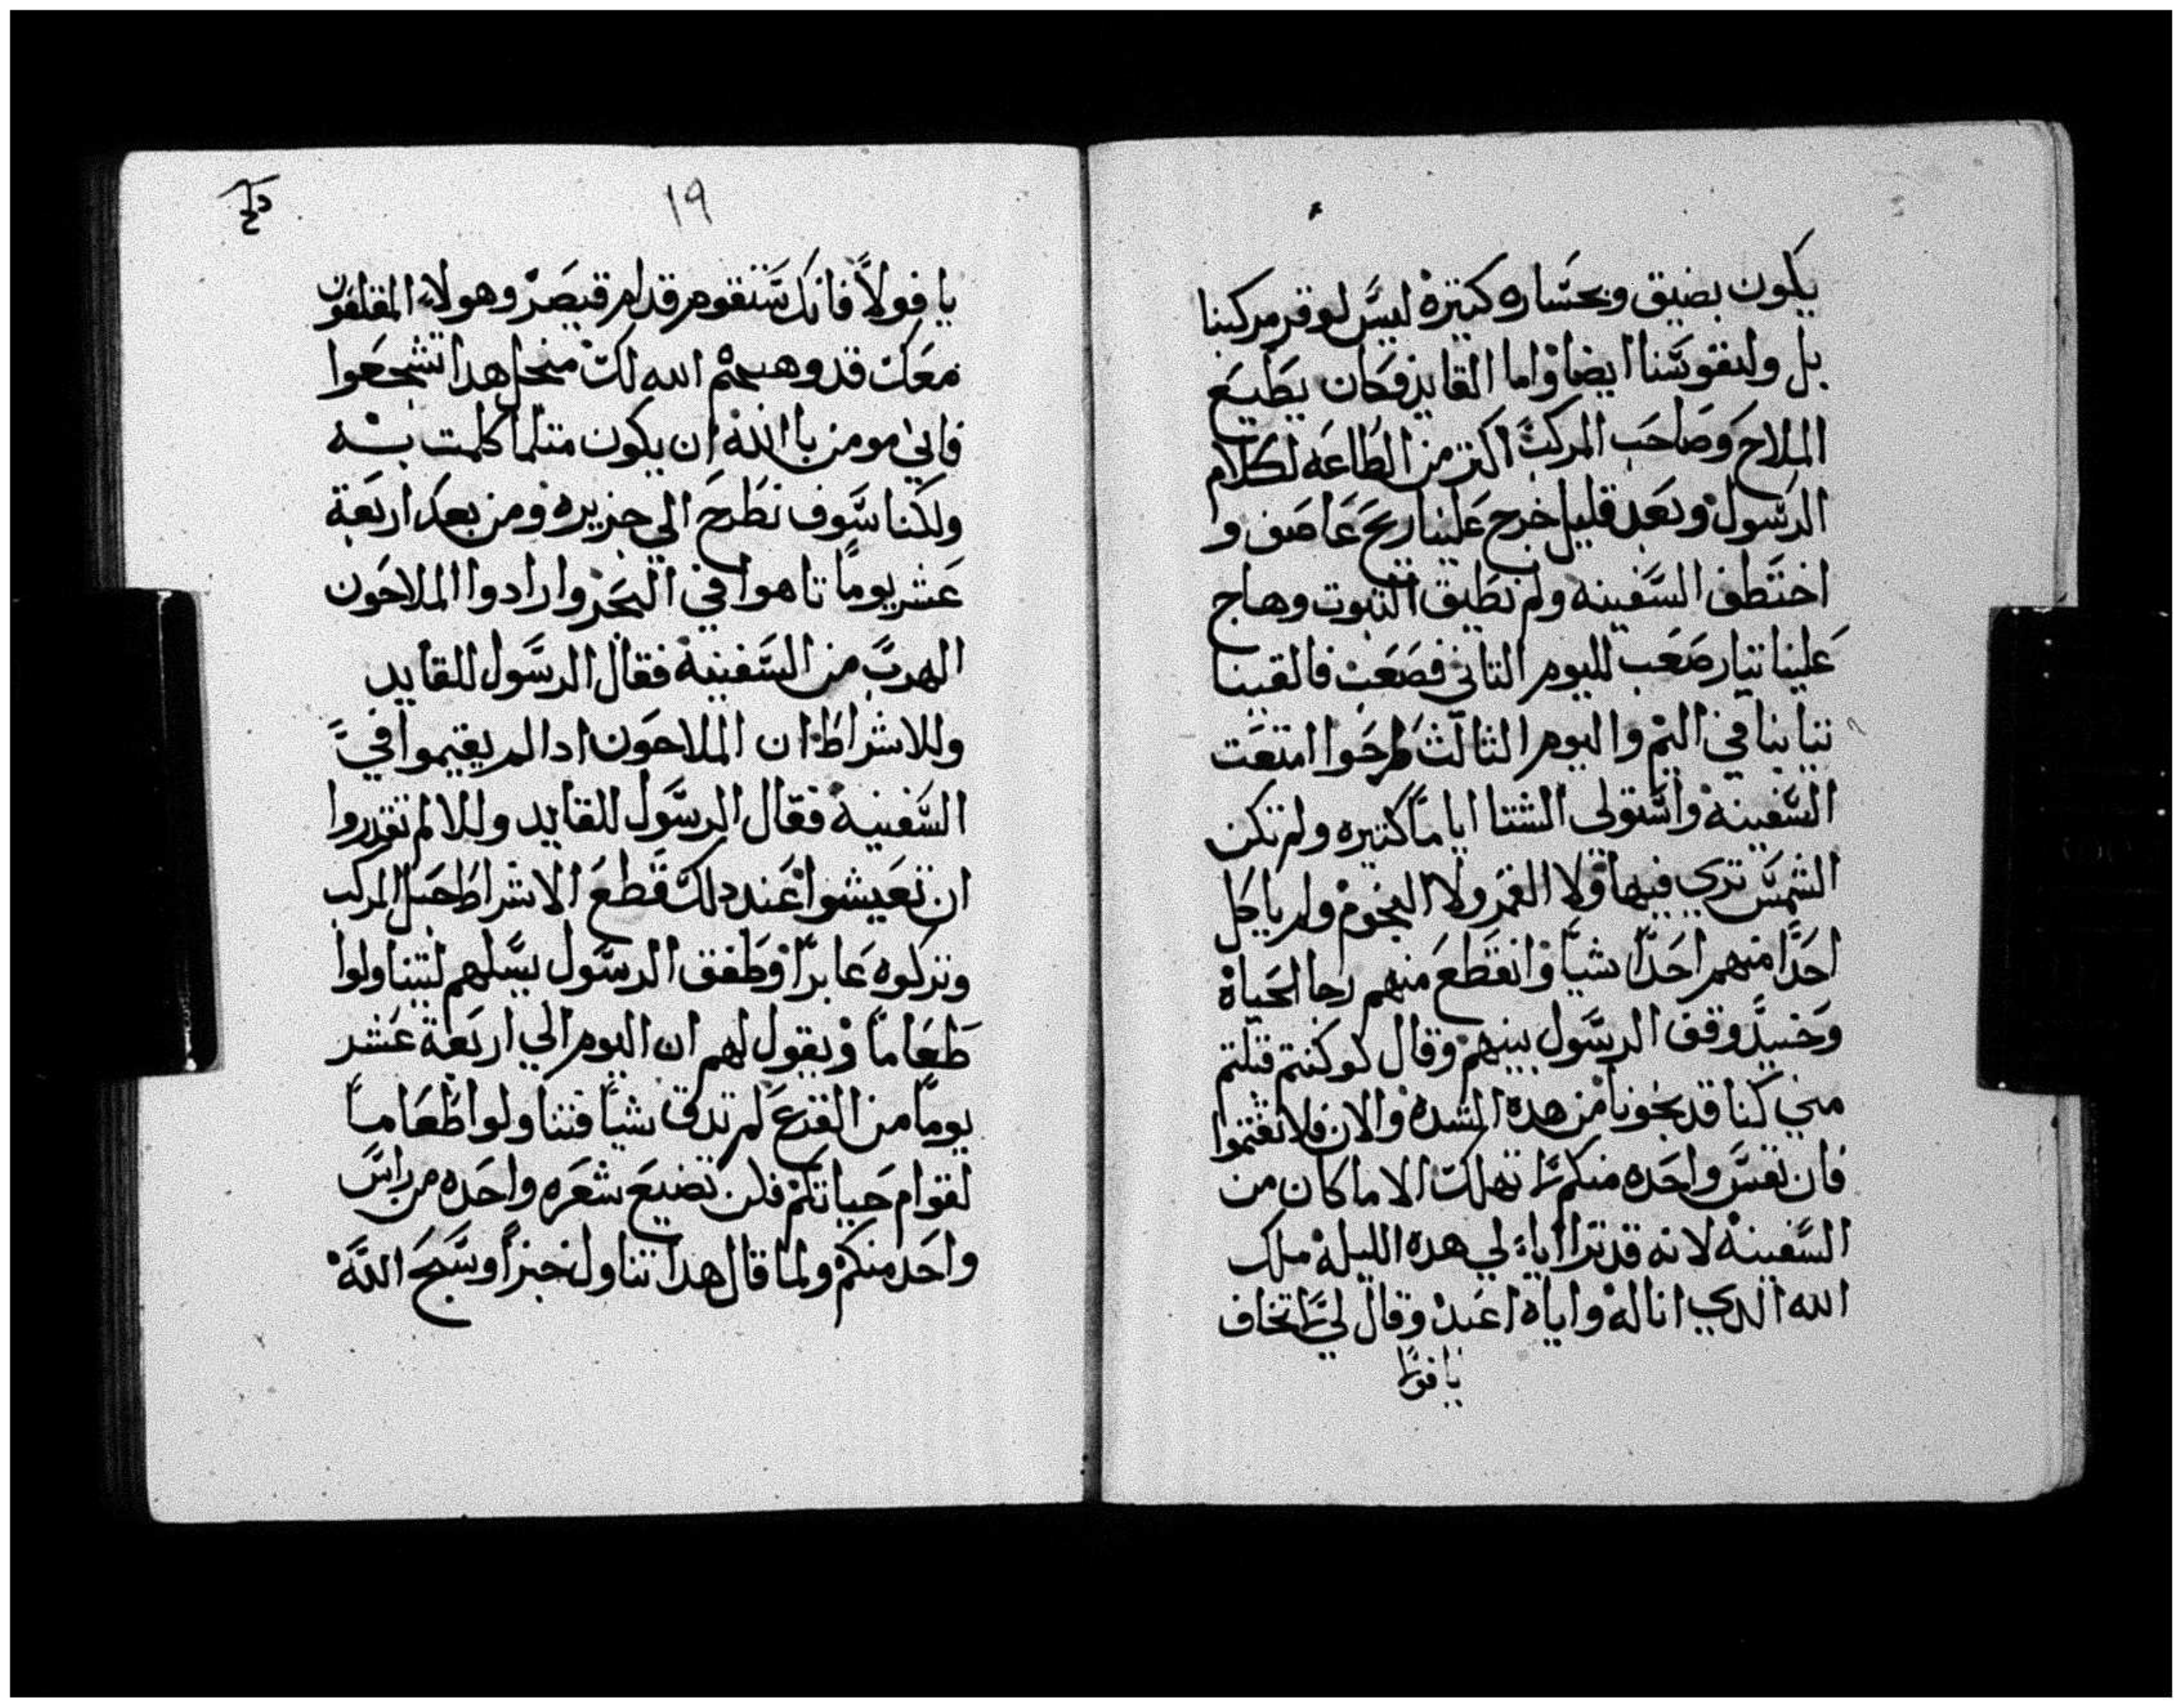 يكون بضيق وبخساره كتيرة ليس لوقر مركبنا
بل ولنفوسنا ايضا واما القايد فكان يطيع
الملاح وصاحب المركب اكتر من الطاعه لكلام
الرسول وبعد قليل خرج علينا ريح عاصف و
اختطف السفينه ولم نطيق التبوت وهاج
علينا تيار صعب لليوم التاني فصعب فالقينا
تيابنا في اليم واليوم الثالث طرحوا امتعت
السفينه واستولي الشتا اياما كتيره ولم تكن
الشمس تري فيها ولا القمر ولا النجوم ولم ياكل
احدا منهم احدا شيا وانقطع منهم رجا الحياة
وحنيد وقف الرسول بينهم وقال لو كنتم قبلتم
مني كنا قد نجونا من هده الشده والان فلا تغتموا
فان نفس واحده منكم لا تهلك الا ما كان من
السفينة لانه قد ترااياء لي هده الليلة ملك
الله الدي انا له واياه اعبد وقال لي لا تخاف
يا فولا
دلح
١٩
يا فولا فانك ستقوم قدام قيصر وهولاء المقلعون
معك قد وهبهم الله لك منحل هدا تشجعوا
فاني مومن باالله ان يكون متلما كلمت به
ولكنا سوف نطرح الي جزيره ومن بعد اربعة
عشر يوما تاهوا في البحر وارادوا الملاحون
الهرب من السفينة فقال الرسول للقايد
وللاشراط ان الملاحون ادا لم يقيموا في
السفينة فقال الرسول للقايد وللا لم تقدروا
ان تعيشوا عند دلك قطع الاشراط حبل المركب
وتركوه عابرا وطفق الرسول يسلهم ليتناولوا
طعاما ويقول لهم ان اليوم الي اربعة عشر
يوما من الفزع لم تدق شيا فتناولوا طعاما
لقوام حياتكم فلن تضيع شعره واحده من راس
واحد منكم ولما قال هدا تناول خبزا وسبح الله